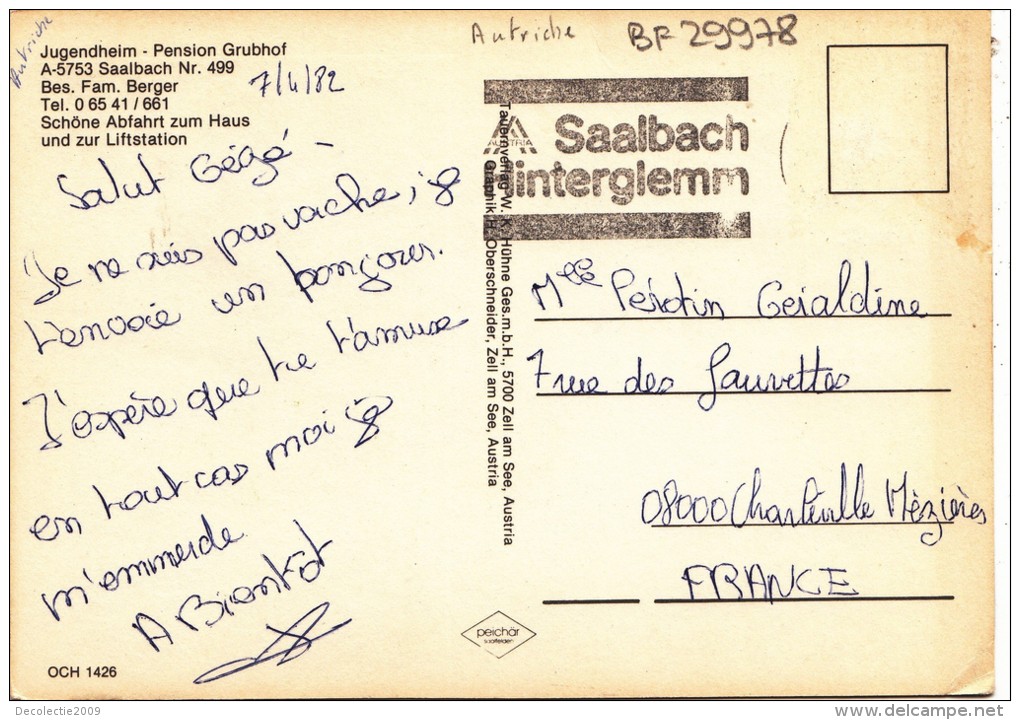 Autriche
Autriche
BF 29978
Jugendheim - Pension Grubhof
A-5753 Saalbach Nr. 499
Bes. Fam. Berger
Tel. 0 65 41 / 661
Schöne Abfahrt zum Haus
und zur Liftstation
7/4/82
AUSTRIA
Saalbach
interglemm
Tauernverlag W. K. Hühne Ges.m.b.H., 5700 Zell am See, Austria
Graphik H. Oberschneider, Zell am See, Austria
Salut Gégé -
Je ne suis pas vache, je
t'envoie un bonjour.
J'espère que tu t'amuse
en tout cas moi je
m'emmerde
A Bientôt
Mlle Perotin Geraldine
7 rue des fauvettes
08000 Charleville Mèzières
FRANCE
peichär
saalfelden
OCH 1426
Decolectie2009
www.delcampe.net